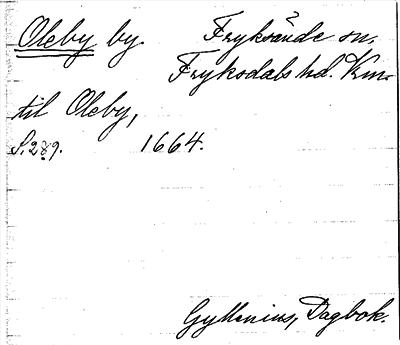 Oleby by. Fryksände sn.
Fryksdals hd. Km.
til Oleby,
S. 289. 1664.
Gyllenius, Dagbok.